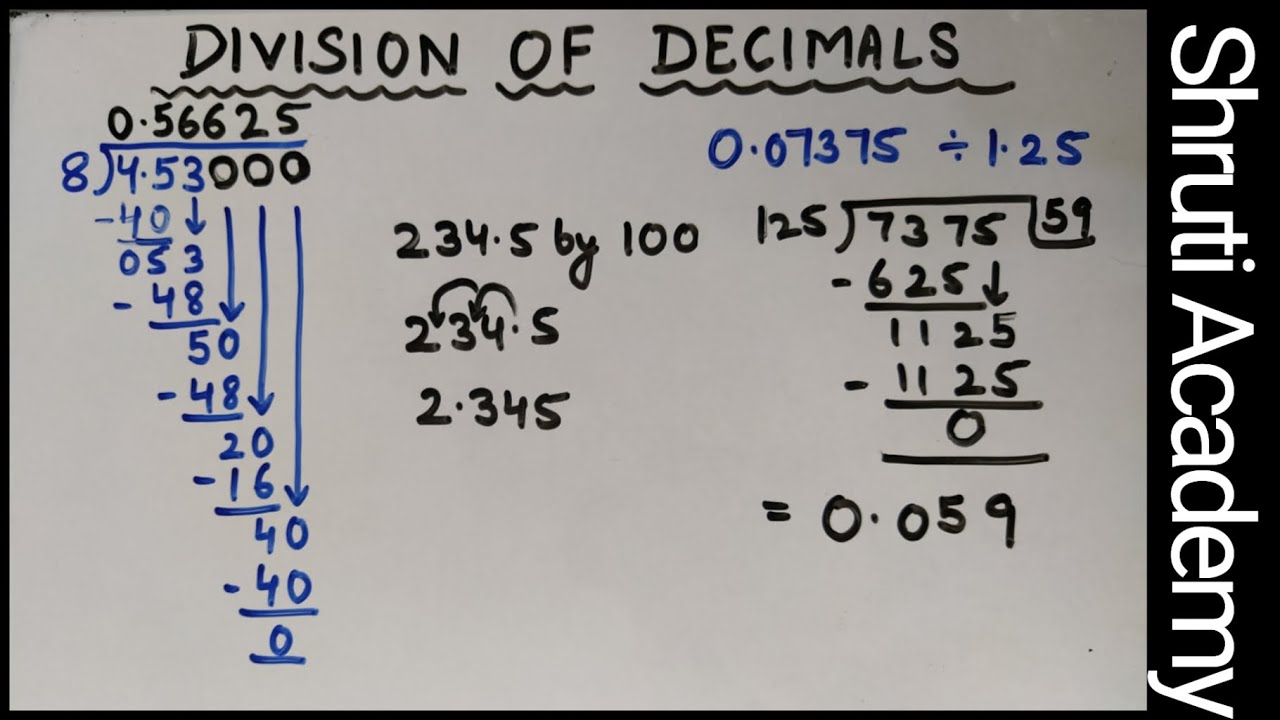 DIVISION OF DECIMALS
0.56625
8)4.53000
-40
053
-48
50
-48
20
-16
40
-40
0
234.5 by 100
234.5
2.345
0.07375 ÷ 1.25
125)7375 59
-625
1125
-1125
0
= 0.059
Shruti Academy